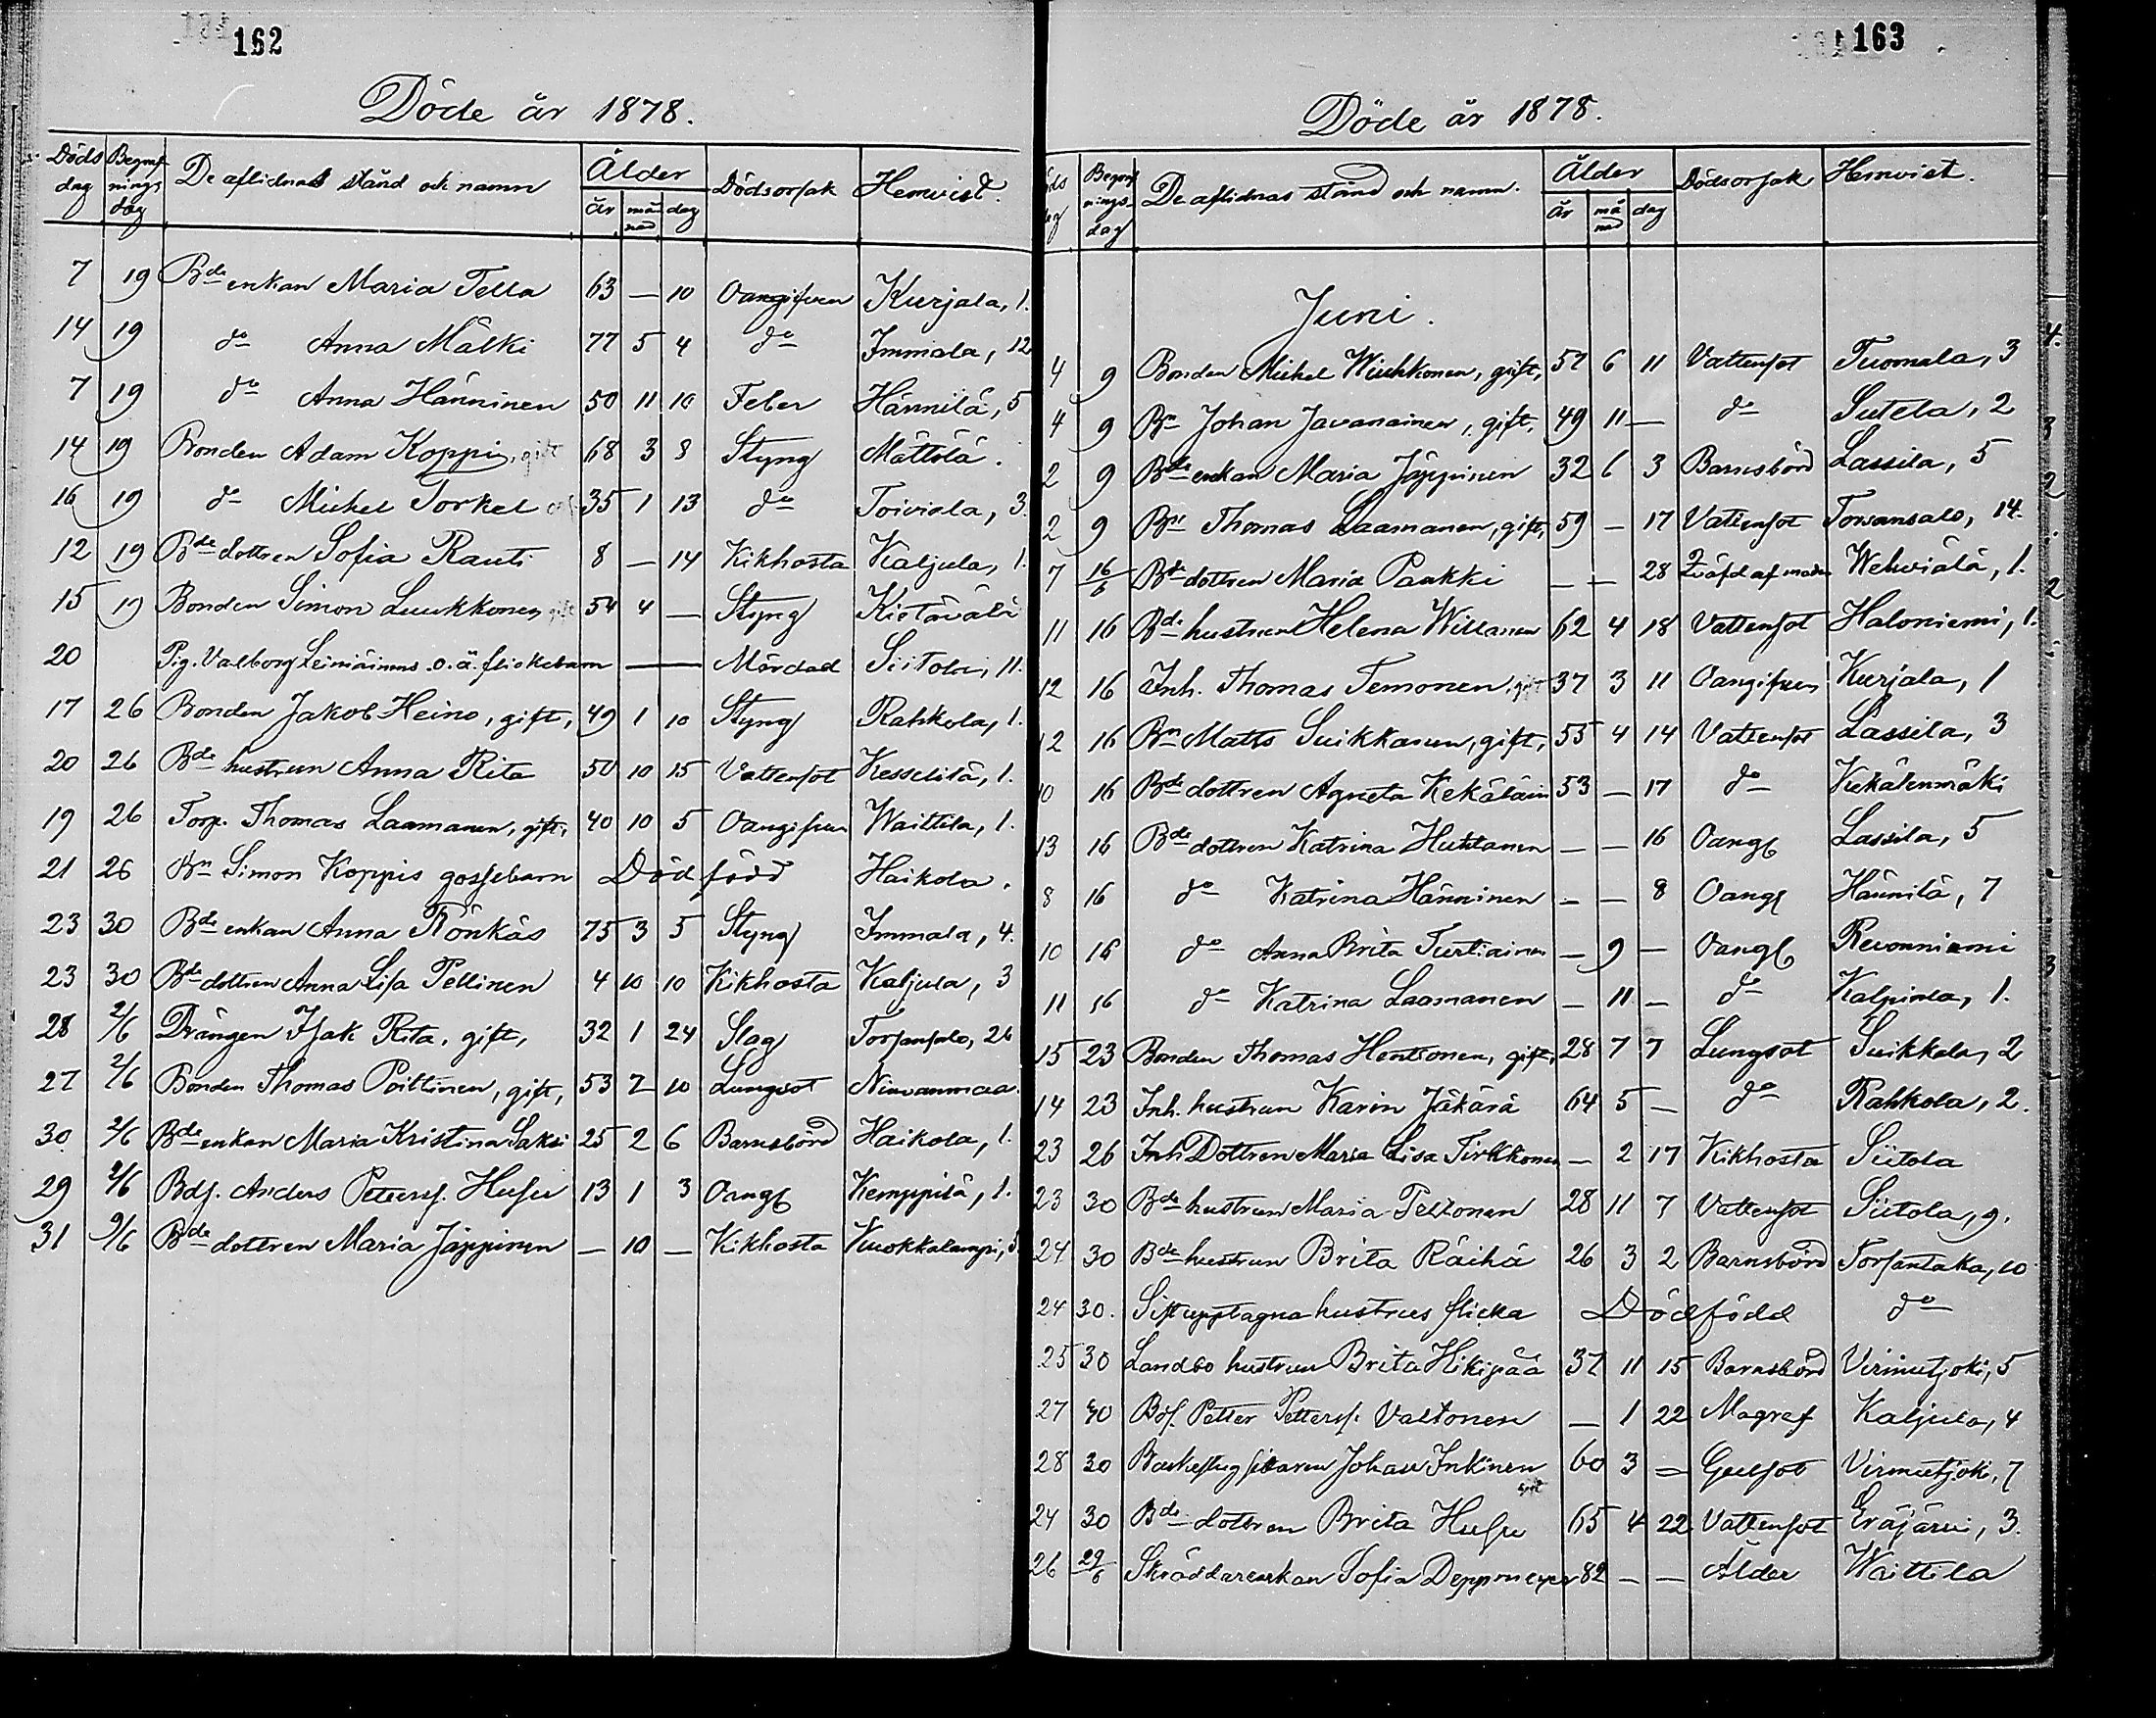 162
Döde år 1878.
Döds dag | Begrafnings dag | De aflidnas stånd och namn | Ålder år månad dag | Dödsorsak | Hemvist.
7 19 Bde enkan Maria Tella 63 — 10 Oangifven Kurjala, 1.
14 19 do Anna Mälki 77 5 4 do Immala, 12
7 19 do Anna Hänninen 50 11 10 Feber Hännilä, 5
14 19 Bonden Adam Koppi, gift 68 3 8 Styng Mättölä.
16 19 do Mickel Torkel 35 1 13 do Toiviala, 3.
12 19 Bde dottren Sofia Rauti 8 — 14 Kikhosta Kaljula, 1.
15 19 Bonden Simon Luukkonen, gift 54 4 — Styng Kietävälä
20 Pig. Valborg Leiniäinens o. ä. flickebarn — Mördad Siitola, 11.
17 26 Bonden Jakob Heino, gift, 49 1 10 Styng Rahkola, 1.
20 26 Bde hustrun Anna Rita 50 10 15 Vattensot Kesselilä, 1.
19 26 Torp. Thomas Laamanen, gift, 40 10 5 Oangifven Waittila, 1.
21 26 Bn Simon Koppis gossebarn Dödfödd Haikola.
23 30 Bde enkan Anna Rönkäs 75 3 5 Styng Immala, 4.
23 30 Bde dottren Anna Lisa Pellinen 4 10 10 Kikhosta Kaljula, 3
28 2/6 Drängen Isak Rita, gift, 32 1 24 Slag Torsansalo, 26
27 2/6 Bonden Thomas Poittinen, gift, 53 7 10 Lungsot Niinanmaa.
30 2/6 Bde enkan Maria Kristina Saksi 25 2 6 Barnsbörd Haikola, 1.
29 2/6 Bds. Anders Petterss. Husu 13 1 3 Oangf Kemppilä, 1.
31 9/6 Bde dottren Maria Jäppinen — 10 — Kikhosta Kuokkalampi, 5
163
Döde år 1878.
Döds dag | Begrafnings dag | De aflidnas stånd och namn. | Ålder år månad dag | Dödsorsak | Hemvist.
Juni.
4 9 Bonden Mickel Wiuhkonen, gift, 57 6 11 Vattensot Tuomala, 3
4 9 Bn Johan Javanainen, gift, 49 11 — do Sutela, 2
2 9 Bde enkan Maria Jäppinen 32 6 3 Barnsbörd Lassila, 5
2 9 Bn Thomas Laamanen, gift, 59 — 17 Vattensot Torsansalo, 14.
7 16/6 Bde dottren Maria Paukki — — 28 Qväfd af modren Wehviälä, 1.
11 16 Bde hustrun Helena Willanen 62 4 18 Vattensot Haloniemi, 1.
12 16 Inh. Thomas Temonen, gift 37 3 11 Oangifven Kurjala, 1
12 16 Bn Matts Suikkanen, gift, 55 4 14 Vattensot Lassila, 3
10 16 Bde dottren Agneta Kekäläin 53 — 17 do Kekälenmäki
13 16 Bde dottren Katrina Huhtanen — — 16 Oangf Lassila, 5
8 16 do Katrina Hänninen — — 8 Oangf Hännilä, 7
10 16 do Anna Brita Turtiainen — 9 — Oangf Revonniemi
11 16 do Katrina Laamanen — 11 — do Kalpiala, 1.
15 23 Bonden Thomas Henttonen, gift, 28 7 7 Lungsot Suikkala, 2
14 23 Inh. hustrun Karin Jäkärä 64 5 — do Rahkola, 2.
23 26 Inh Dottren Maria Lisa Tirkkonen — 2 17 Kikhosta Siitola
23 30 Bde hustrun Maria Peltonen 28 11 7 Vattensot Siitola, 9.
24 30 Bde hustrun Brita Räihä 26 3 2 Barnsbörd Torsantaka, 10
24 30. Sist upptagna hustrus flicka Dödfödd do
25 30 Landbo hustrun Brita Hikipää 37 11 15 Barnsbörd Virmutjoki, 5
27 30 Bds. Petter Petterss. Valtonen — 1 22 Magref Kaljula, 4
28 30 Johan Inkinen gift 60 3 = Gulsot Virmutjoki, 7
24 30 Bde dottren Brita Husu 65 4 22 Vattensot Eräjärvi, 3.
26 29/6 Skräddareenkan Sofia Deppmeyer 82 — — Ålder Waittila